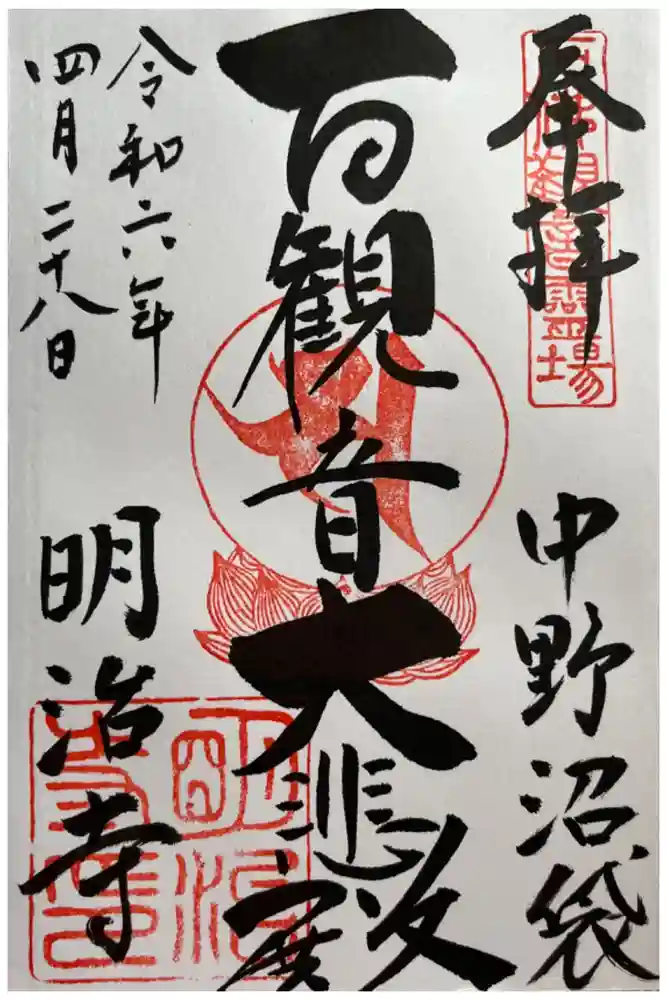 奉拝
中野沼袋
百観音大悲殿
令和六年
四月二十八日
明治寺
明治寺印